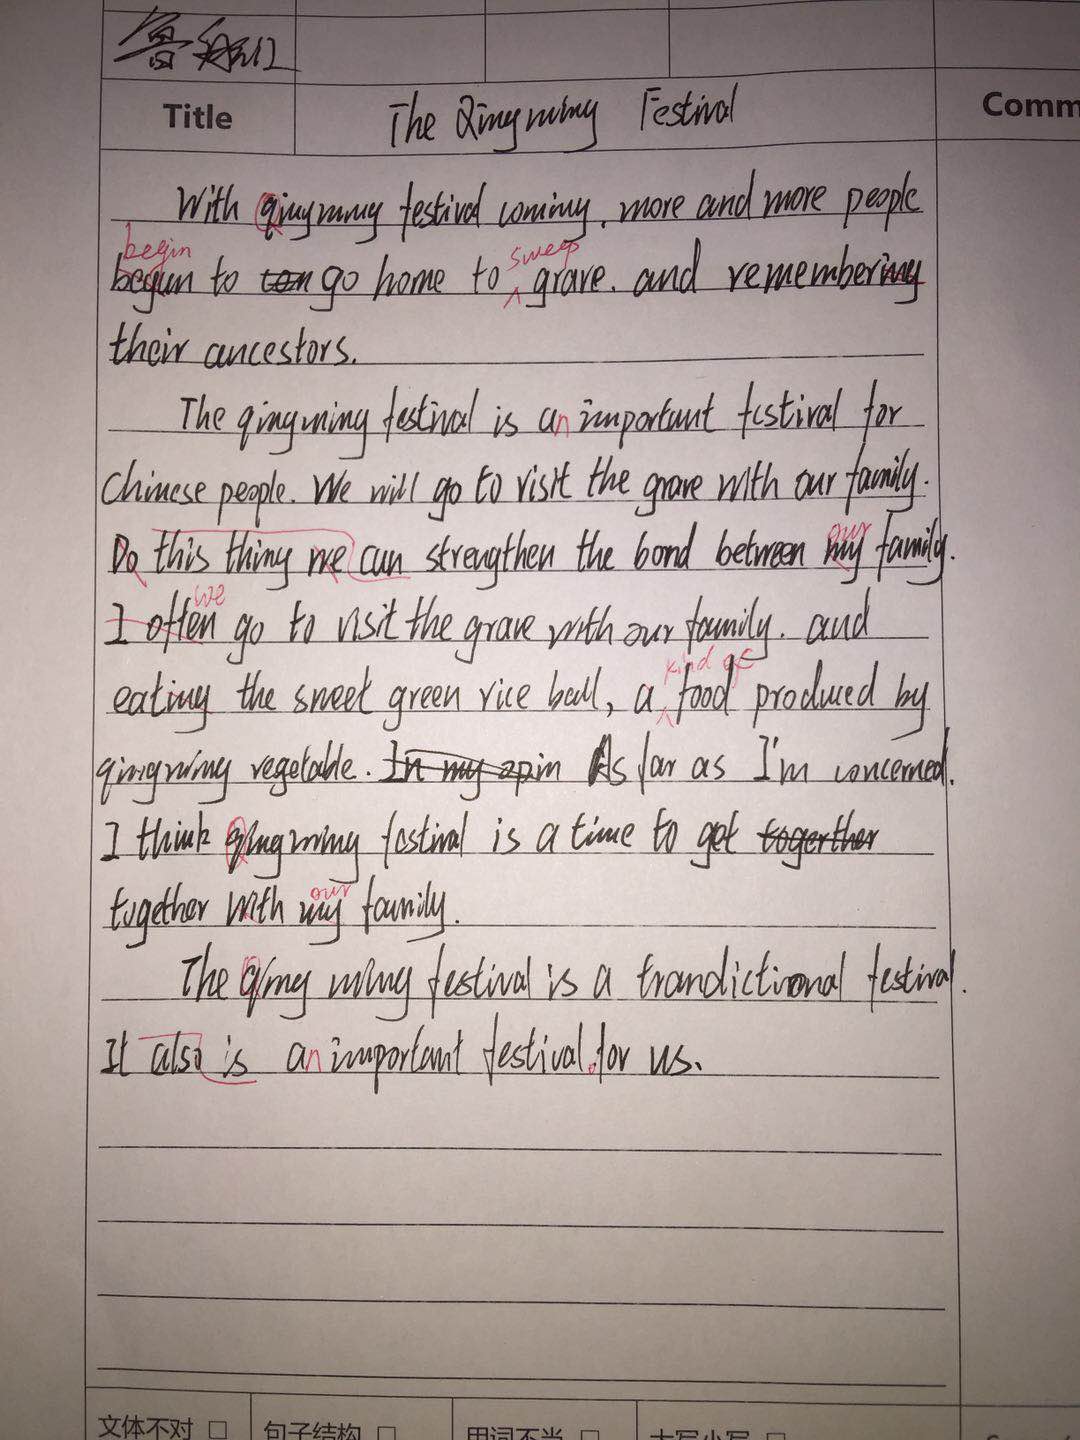 Title The Qingming Festival Comm
With qingming festival coming, more and more people
begin sweep
begun to go home to grave. and remembering
their ancestors.
The qingming festival is an important festival for
Chinese people. We will go to visit the grave with our family.
our
Do this thing we can strengthen the bond between my family.
we
I often go to visit the grave with our family. and
kind of
eating the sweet green rice ball, a food produced by
qingming vegetable. In my opin As far as I'm concerned.
I think qingming festival is a time to get togerther
our
together with my family.
The qing ming festival is a trandictional festival.
It also is an important festival. for us.
文体不对 □ 句子结构 □ 用词不当 □ 大写小写 □